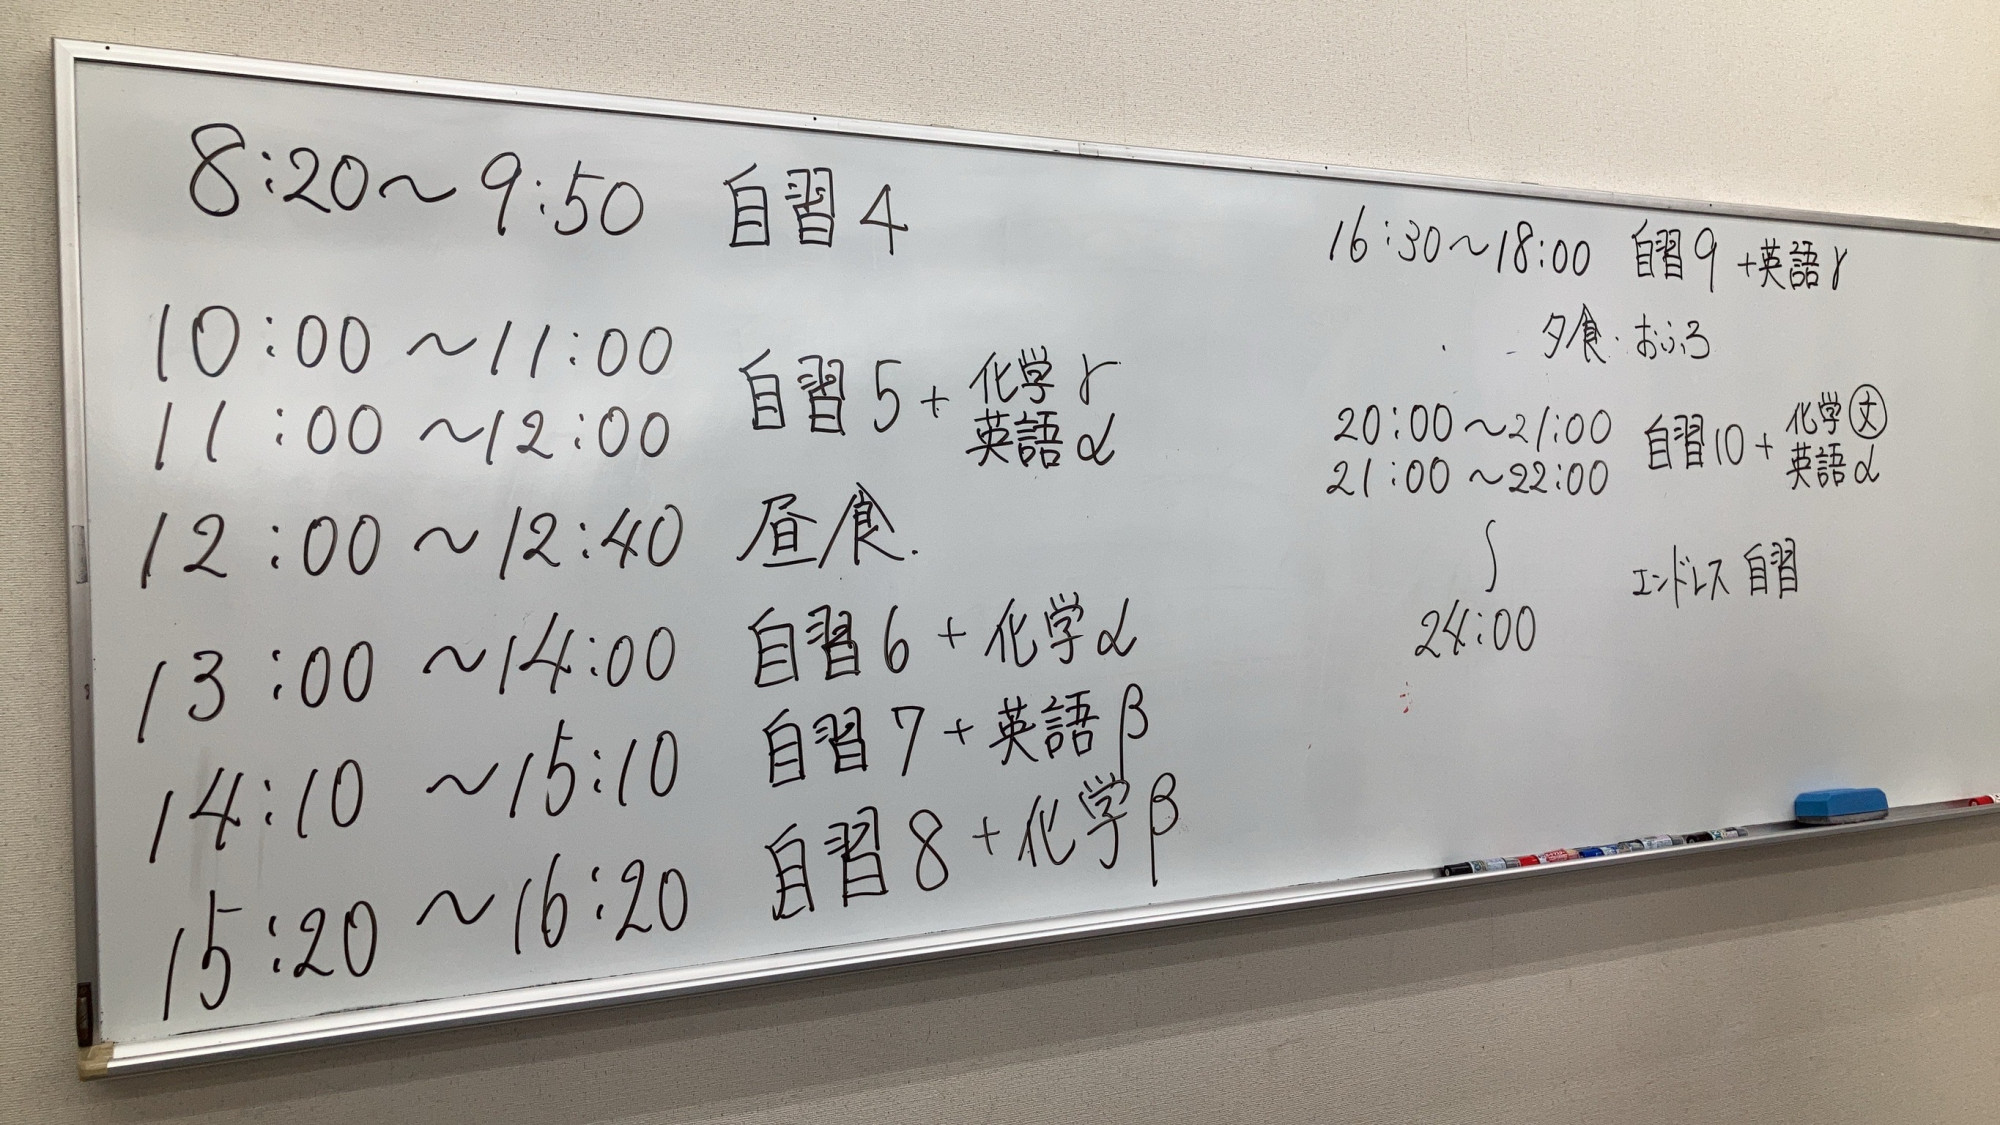 8:20～9:50 自習4
10:00～11:00
11:00～12:00
自習5+
化学γ
英語α
12:00～12:40 昼食.
13:00～14:00 自習6+化学α
14:10～15:10 自習7+英語β
15:20～16:20 自習8+化学β
16:30～18:00 自習9+英語γ
夕食・おふろ
20:00～21:00
21:00～22:00
自習10+
化学
英語α
∫
24:00
エンドレス自習